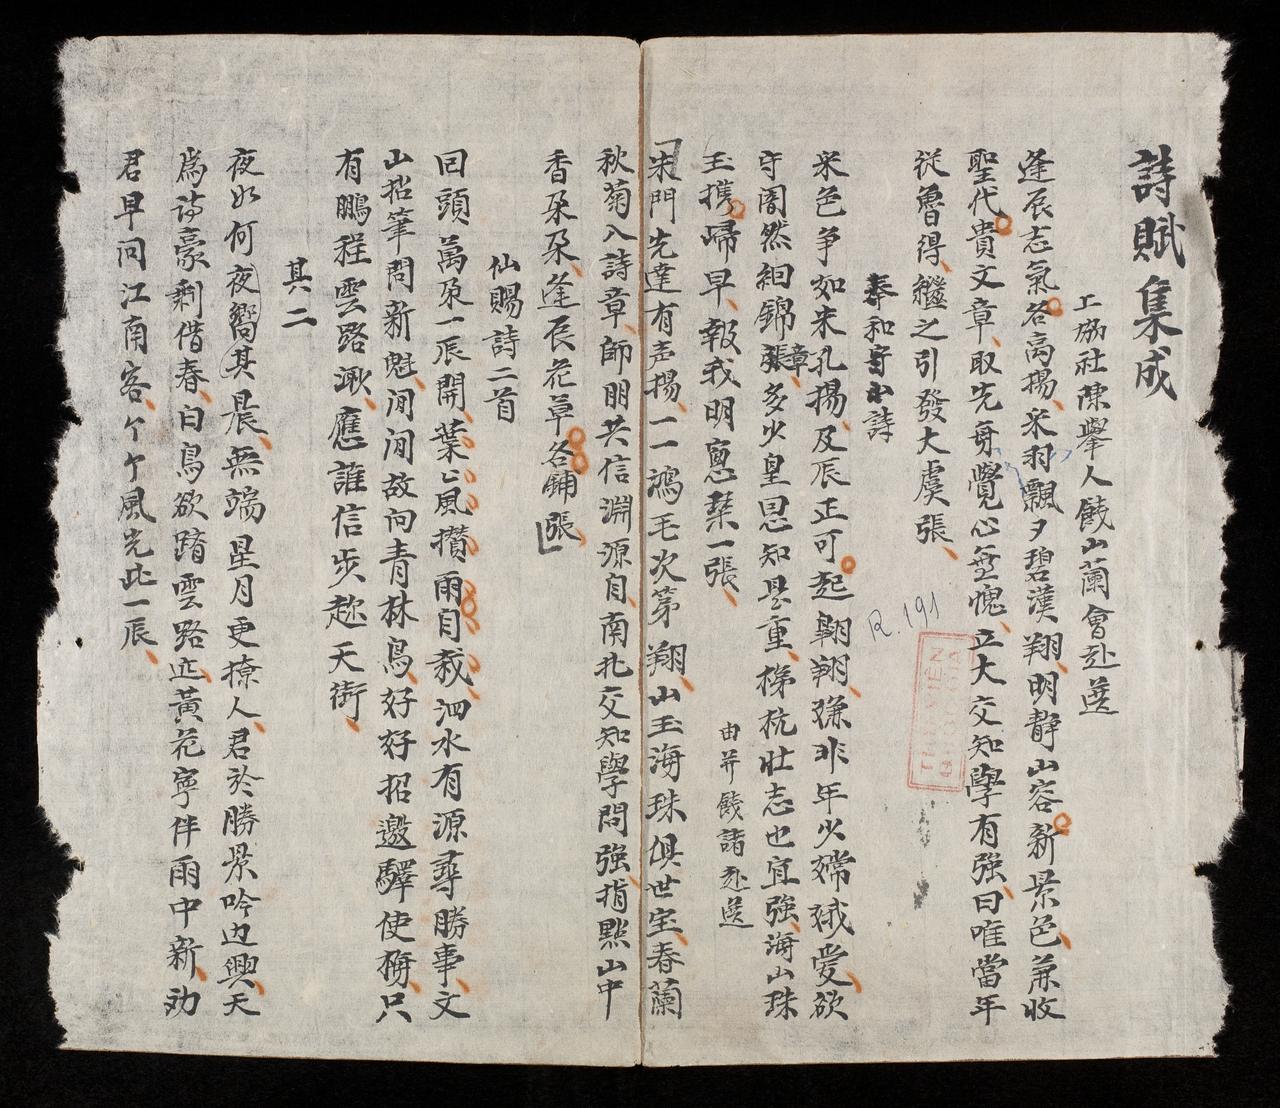 詩賦集成
工㧞社陳舉人餞山蘭會赴選
逢辰志氣各高揚采羽飄夕碧漢翔明靜山容新景色兼收
聖代貴文章取先身覺心無愧立大交知學有強曰唯當年
從魯得繼之引發大虞張
奉和寄本詩
采色爭如朱孔揚及辰正可起翱翔嫌非年少嫦娥愛欲
守闇然絅錦張章多少皇恩知是重梯杭壯志也宜強海山珠
玉携歸早報我明窓琹一張
由并餞諸赴選
朱門先達有声揚一一鴻毛次第翔山玉海珠俱世宝春蘭
秋菊入詩章師朋共信淵源自南北交知學問強指點山中
香朶朶逢辰花草各鋪張
仙賜詩二首
回頭萬朶一辰開葉亡風攢雨自栽泗水有源尋勝事文
山招筆問新魁閒閒故向青林鳥好好招邀驛使䳟只
有鵬程雲路濶應誰信步趂天街
其二
夜如何夜嚮其晨無端星月更撩人君於勝景吟边興天
為詩豪剩借春白鳥欲蹐雲路迹黃花寧伴雨中新劝
君早问江南客个个風光此一辰
R.191